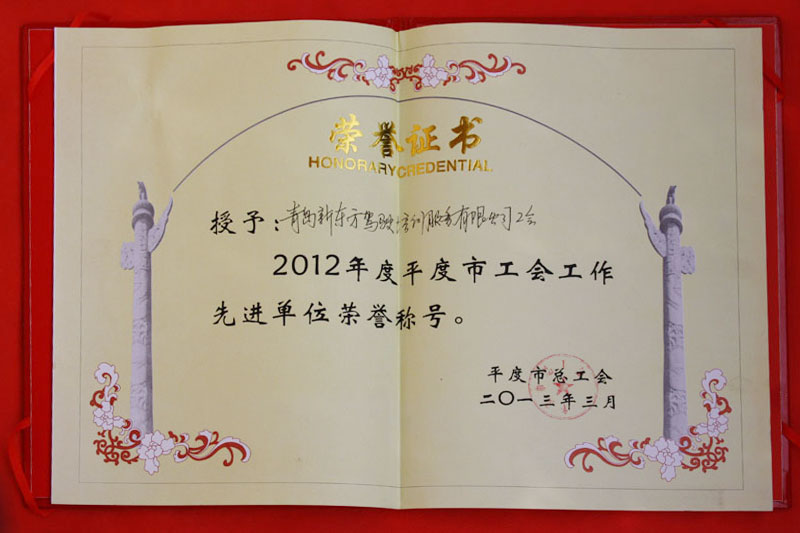 荣誉证书
HONORARY CREDENTIAL
授予：青岛新东方驾驶培训服务有限公司工会
2012年度平度市工会工作
先进单位荣誉称号。
平度市总工会
二〇一三年三月